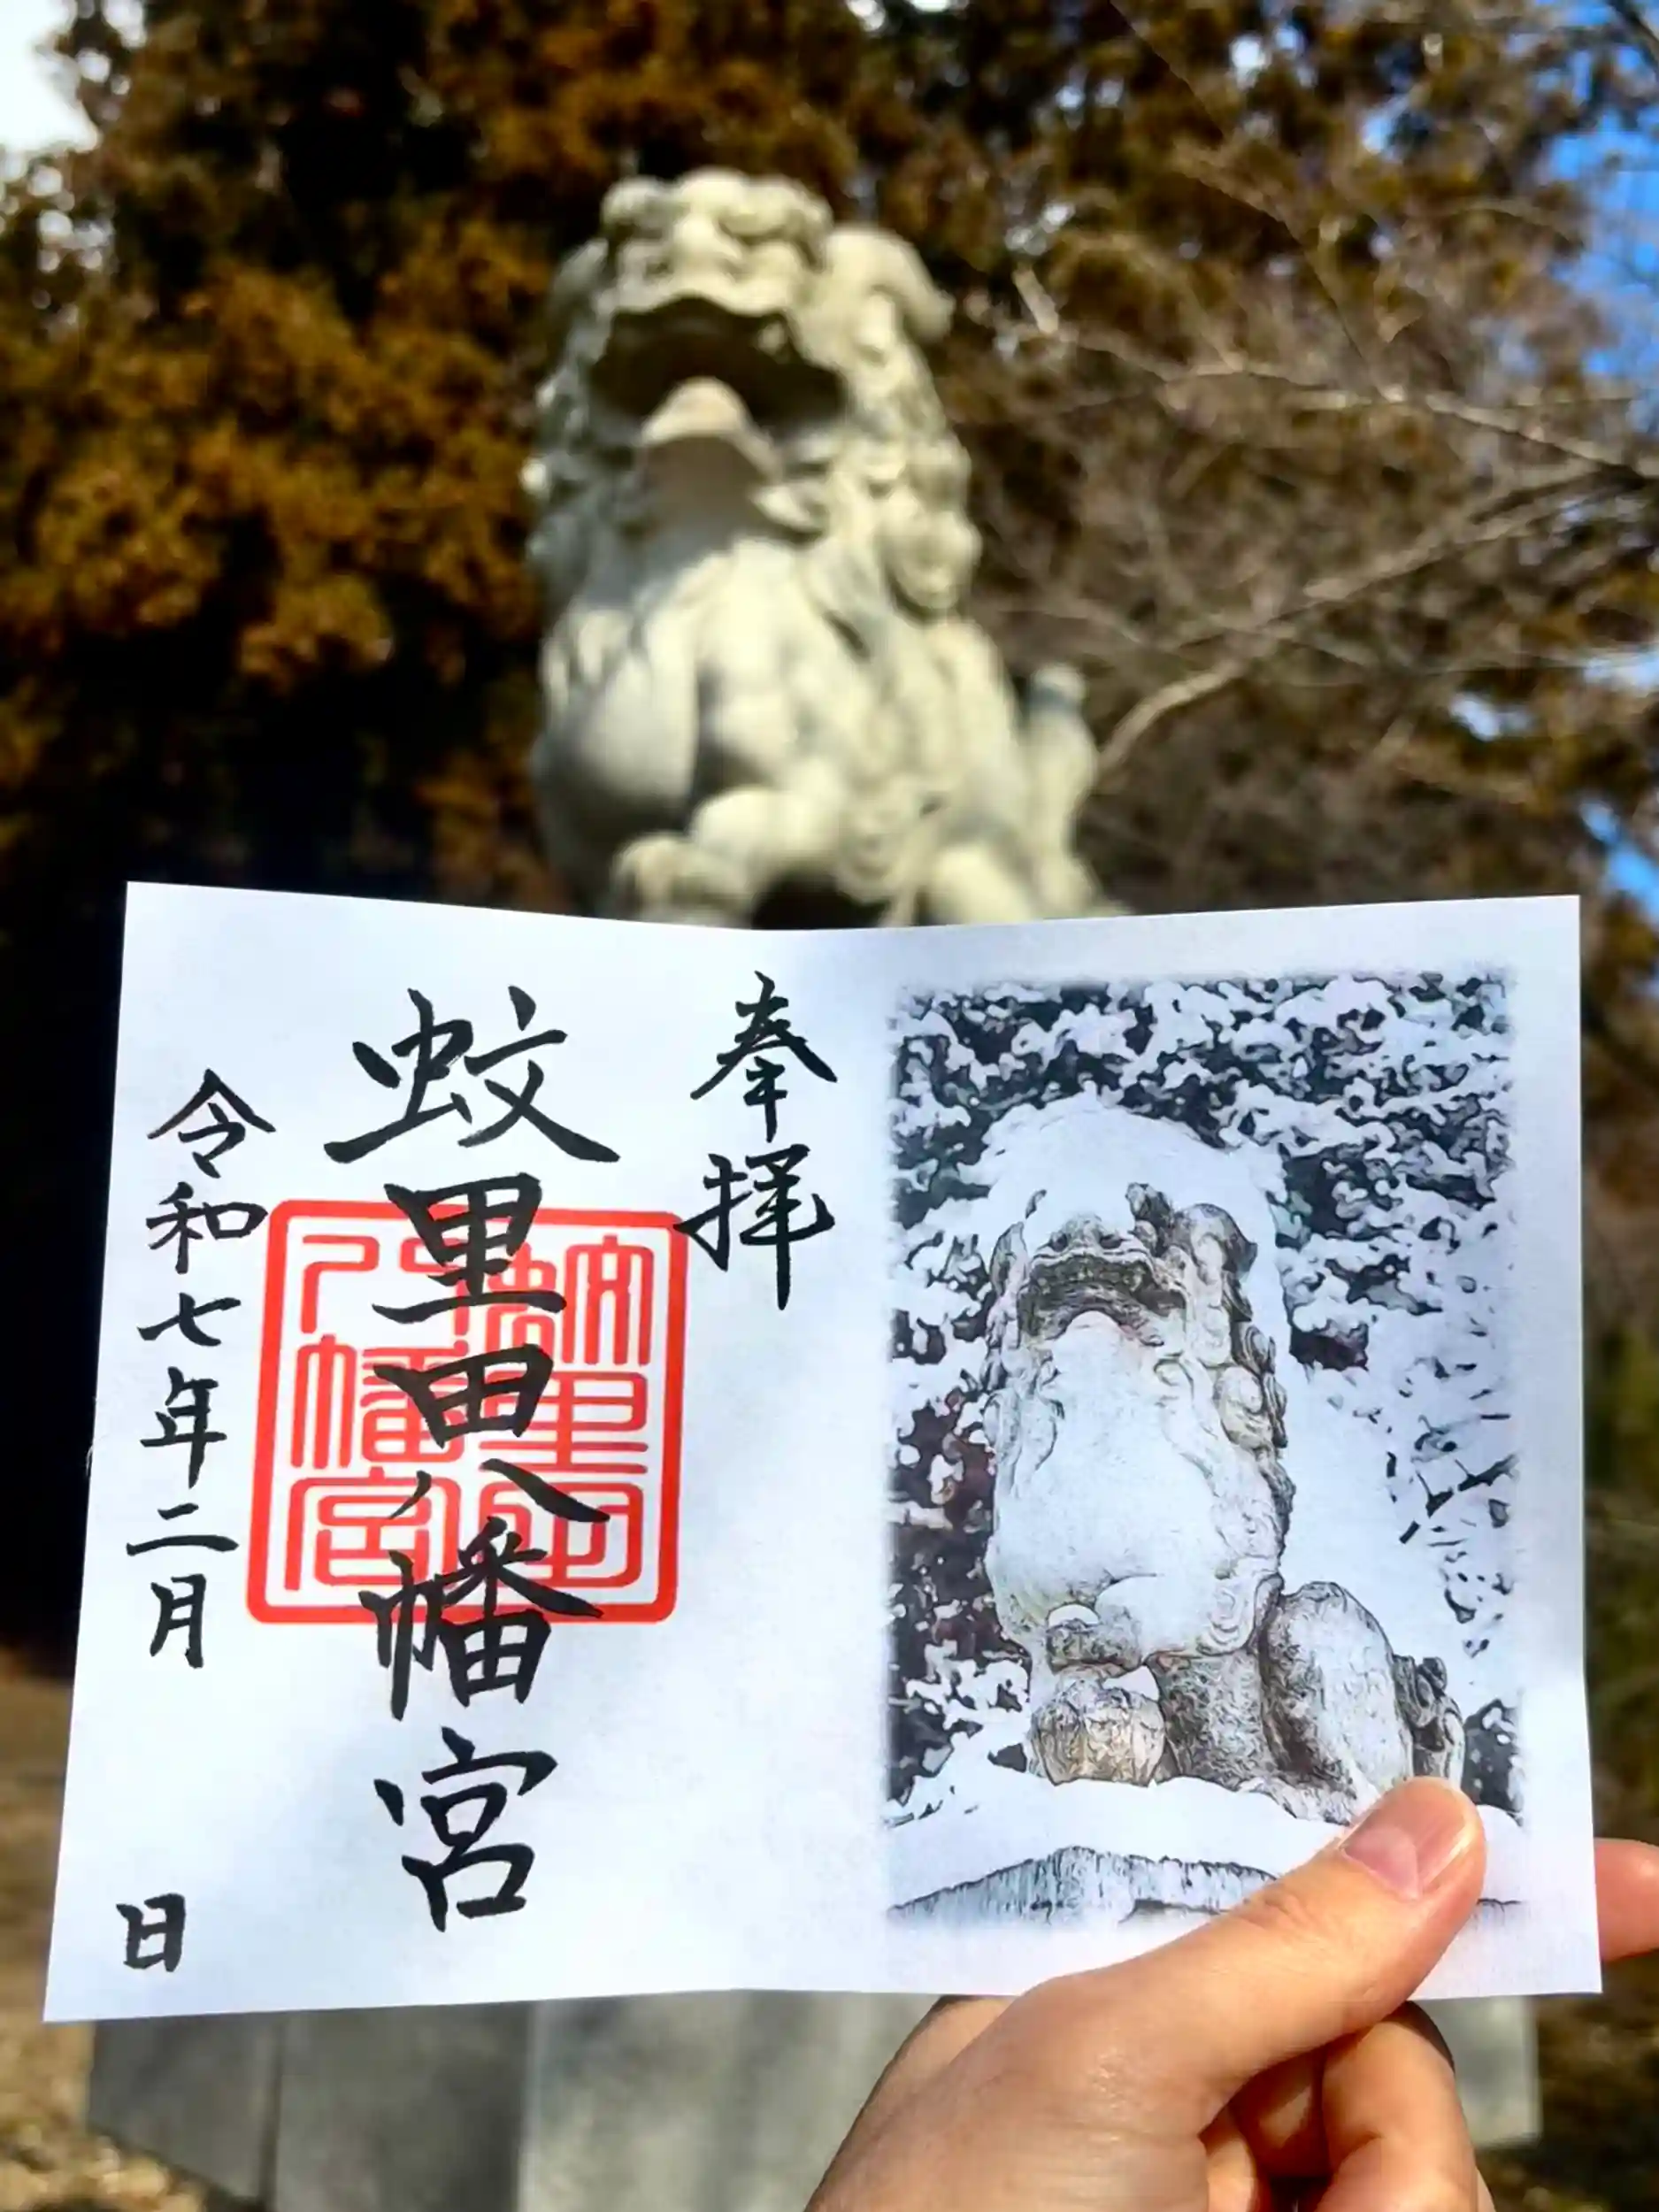 奉拝
蛟里田八幡宮
蛟里田
八幡宮
令和七年二月 日